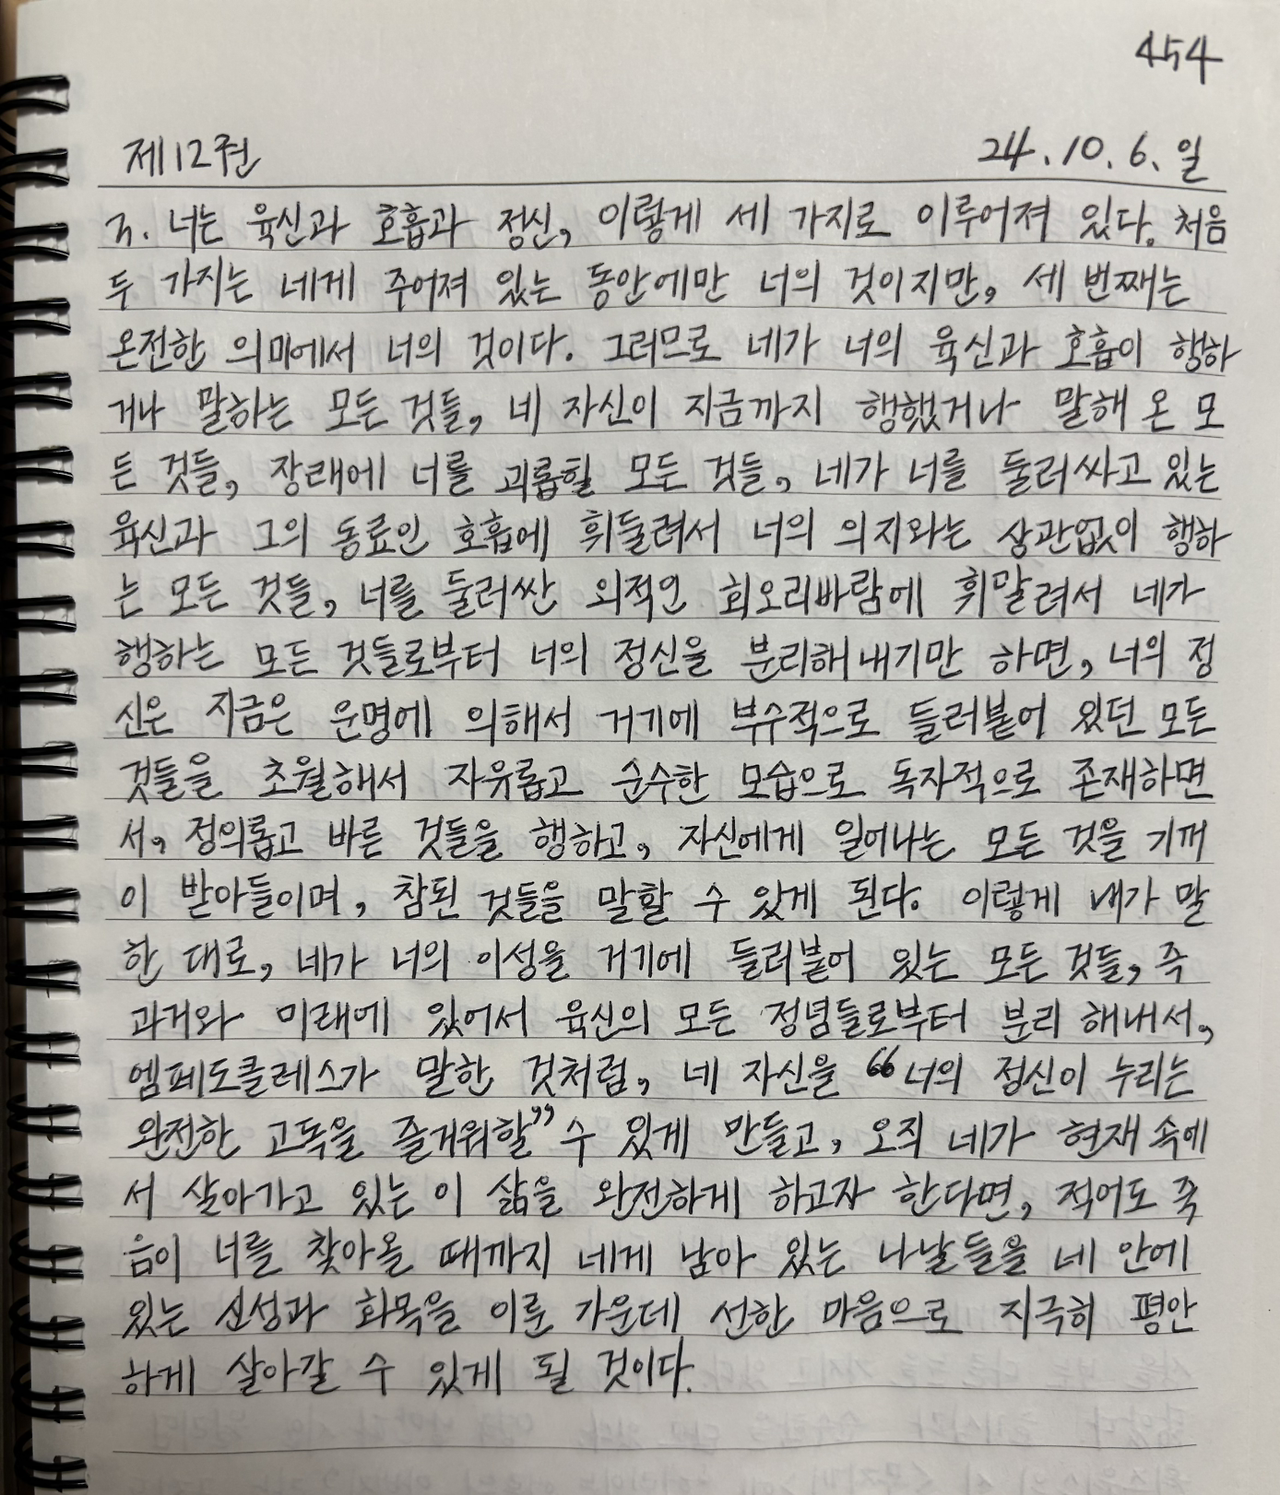 454
제12권 24.10.6.일
3. 너는 육신과 호흡과 정신, 이렇게 세 가지로 이루어져 있다. 처음
두 가지는 네게 주어져 있는 동안에만 너의 것이지만, 세 번째는
온전한 의미에서 너의 것이다. 그러므로 네가 너의 육신과 호흡이 행하
거나 말하는 모든 것들, 네 자신이 지금까지 행했거나 말해 온 모
든 것들, 장래에 너를 괴롭힐 모든 것들, 네가 너를 둘러싸고 있는
육신과 그의 동료인 호흡에 휘둘려서 너의 의지와는 상관없이 행하
는 모든 것들, 너를 둘러싼 외적인 회오리바람에 휘말려서 네가
행하는 모든 것들로부터 너의 정신을 분리해내기만 하면, 너의 정
신은 지금은 운명에 의해서 거기에 부수적으로 들러붙어 있던 모든
것들을 초월해서 자유롭고 순수한 모습으로 독자적으로 존재하면
서, 정의롭고 바른 것들을 행하고, 자신에게 일어나는 모든 것을 기꺼
이 받아들이며, 참된 것들을 말할 수 있게 된다. 이렇게 내가 말
한 대로, 네가 너의 이성을 거기에 들러붙어 있는 모든 것들, 즉
과거와 미래에 있어서 육신의 모든 정념들로부터 분리 해내서,
엠페도클레스가 말한 것처럼, 네 자신을 “너의 정신이 누리는
완전한 고독을 즐거워할” 수 있게 만들고, 오직 네가 현재 속에
서 살아가고 있는 이 삶을 완전하게 하고자 한다면, 적어도 죽
음이 너를 찾아올 때까지 네게 남아 있는 나날들을 네 안에
있는 신성과 화목을 이룬 가운데 선한 마음으로 지극히 평안
하게 살아갈 수 있게 될 것이다.